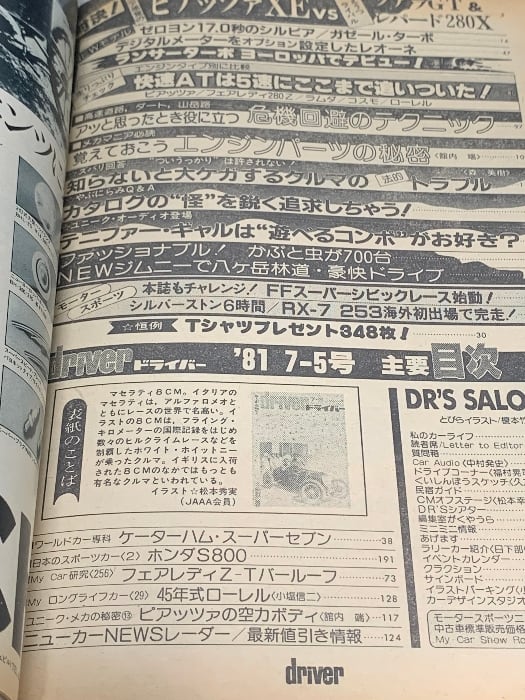 ピアッツァXE vs
ゼロヨン17.0秒のシルビア/ガゼール・ターボ
デジタルメーターをオプション設定したレオーネ
ランサーターボ ヨーロッパでデビュー!
エンジンタイプ別に比較
快速ATは5速にここまで追いついた!
ピアッツァ/フェアレディ280Z/ラムダ/コスモ/ローレル
■高速道路、ダート、山岳路
アッと思ったとき役に立つ 危機回避のテクニック
メカマニア必読
覚えておこう エンジンパーツの秘密〈館内 端〉
ズバリ回答 "ついうっかり"は許されない!
知らないと大ケガするクルマの 法的 トラブル
やぶにらみQ&A
カタログの"怪"を鋭く追求しちゃう!
ユニーク・オーディオ登場
テニファー・ギャルは"遊べるコンポ"がお好き?
ファッショナブル! かぶと虫が700台
NEWジムニーで八ケ岳林道・豪快ドライブ
モータースポーツ
本誌もチャレンジ! FFスーパーシビックレース始動!
シルバーストン6時間/RX-7 253海外初出場で完走!
☆恒例 Tシャツプレゼント348枚! 30
driver ドライバー '81 7-5号 主要目次
表紙のことば
マセラティ8CM。イタリアの
マセラティは、アルファロメオと
ともにレースの世界で名高い。イ
ラストの8CMは、フライング・
キロメーターの国際記録をはじめ
数々のヒルクライムレースなどを
制覇したホワイト・ホイットニー
が乗ったクルマ。イギリスに入荷
された8CMのなかではもっとも
有名なクルマといわれている。
イラスト☆松本秀実
(JAAA会員)
driver
ドライバー
ワールドカー専科 ケーターハム・スーパーセブン 38
日本のスポーツカー〈2〉 ホンダS800 191
My Car研究〈256〉 フェアレディZ-Tバールーフ 73
My ロングライフカー〈29〉 45年式ローレル〈小塩信二〉 128
ユニーク・メカの秘密⑬ ピアッツァの空力ボディ〈館内 端〉 117
ニューカーNEWSレーダー/最新値引き情報 124
DR'S SALO
とびらイラスト/榎本
私のカーライフ
読者席/Letter to Editor
質問箱
Car Audio〈中村発史〉
ドライブコーナー〈福村晃
くいしんぼうスケッチ〈久
民宿ガイド
CMオフステージ〈松本幸
DR'Sシアター
編集室がくやうら
ミニミニ情報
あげます
ラリーカー紹介〈日下部
イベントカレンダー
クラクション
サインボード
イラストパーキング〈小
カーデザインスタジオ
モータースポーツニ
中古車標準販売価格
My Car Show Ro
driver